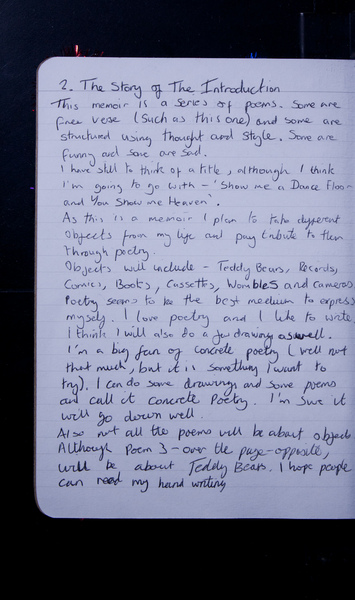 2. The Story of The Introduction
This memoir is a series of poems. Some are
free verse (such as this one) and some are
structured using thought and style. Some are
funny and some are sad.
I have still to think of a title, although I think
I'm going to go with - 'Show me a Dance Floor
and You Show me Heaven'.
As this is a memoir I plan to take different
Objects from my life and pay tribute to them
through poetry.
Objects will include - Teddy Bears, Records,
Comics, Books, Cassetts, Wombles and cameras
Poetry seems to be the best medium to express
myself. I love poetry and I like to write.
I think I will also do a few drawing as well.
I'm a big fan of concrete poetry (well not
that much, but it is something I want to
try). I can do some drawings and some poems
and call it Concrete Poetry. I'm sure it
will go down well.
Also not all the poems will be about objects
Although Poem 3 - over the page - opposite,
will be about Teddy Bears. I hope people
can read my hand writing